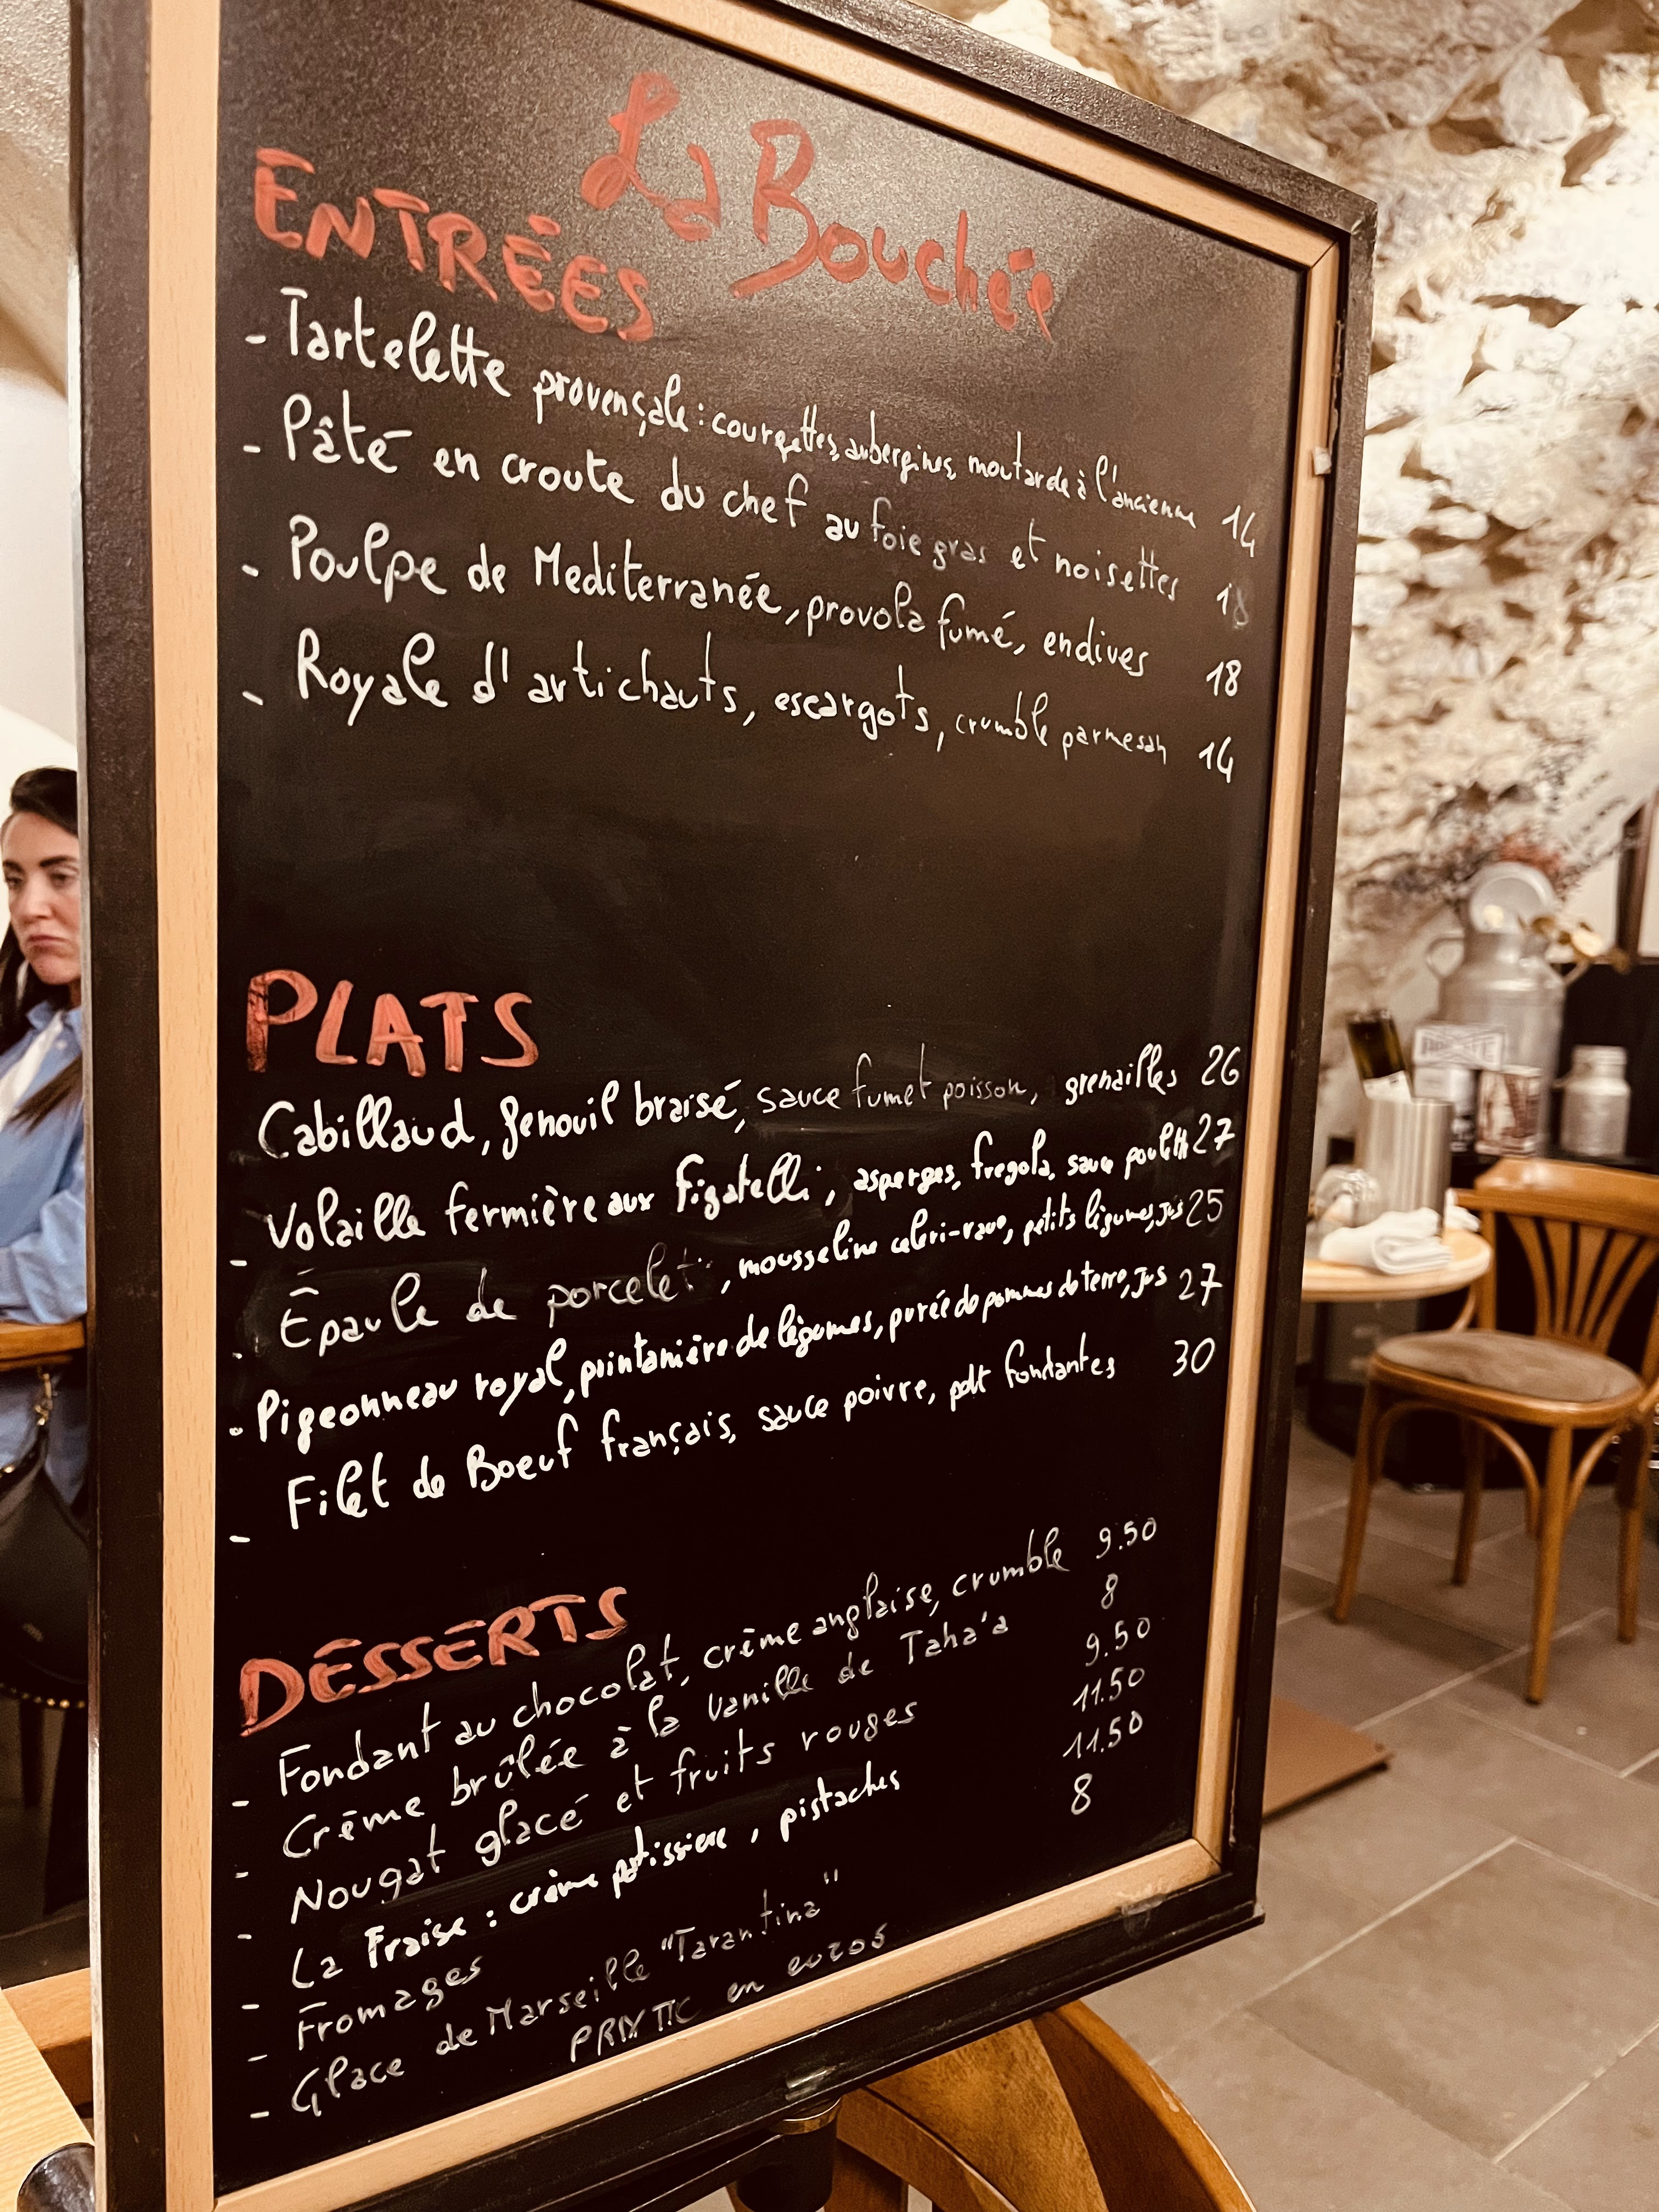 La Bouchée
ENTRÉES
- Tartelette provençale : courgettes, aubergines, moutarde à l'ancienne 14
- Pâté en croute du chef au foie gras et noisettes 18
- Poulpe de Mediterranée, provola fumé, endives 18
- Royale d'artichauts, escargots, crumble parmesan 14
PLATS
Cabillaud, fenouil braisé, sauce fumet poisson, grenailles 26
- Volaille fermière aux figatelli, asperges, fregola, sauce poulette 27
- Épaule de porcelet, mousseline celeri-rave, petits légumes, jus 25
- Pigeonneau royal, printanière de légumes, purée de pommes de terre, jus 27
- Filet de Boeuf français, sauce poivre, pdt fondantes 30
DESSERTS
- Fondant au chocolat, crème anglaise, crumble 9.50
- Crème brûlée à la vanille de Taha'a 8
- Nougat glacé et fruits rouges 9.50
- La Fraise : crème patissiere, pistaches 11.50
- Fromages 11.50
- Glace de Marseille "Tarantina" 8
PRIX TTC en euros